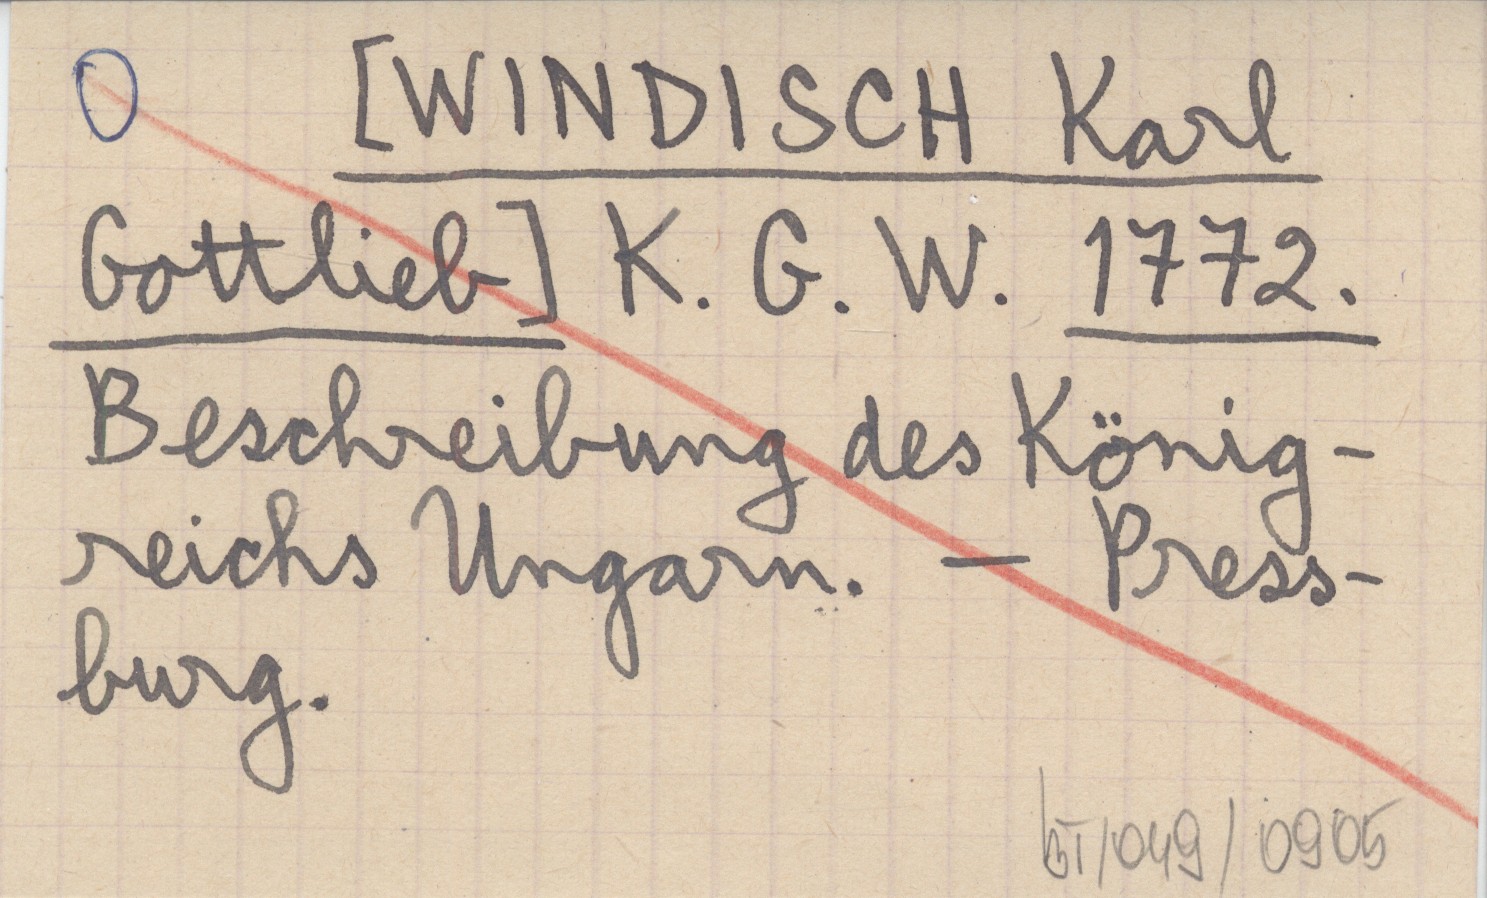 [WINDISCH Karl
Gottlieb] K. G. W. 1772.
Beschreibung des König-
reichs Ungarn. — Press-
burg.
BT/049/0905